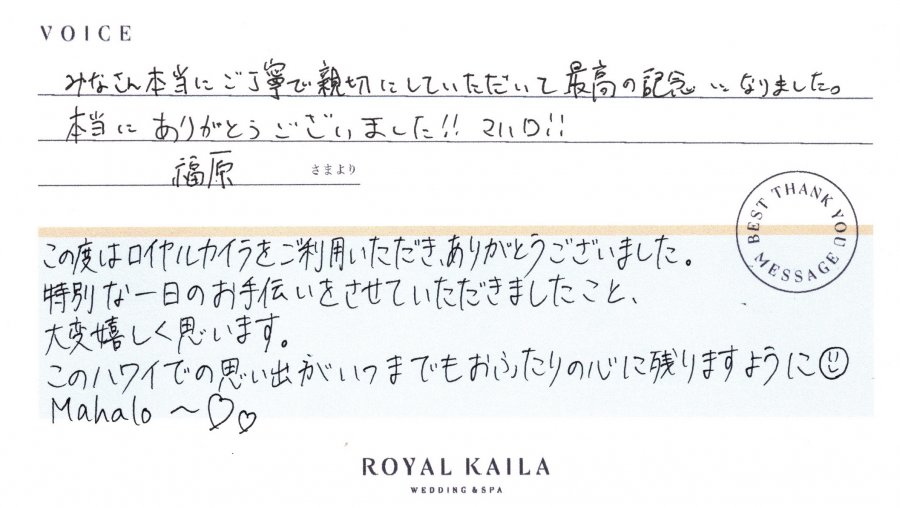 VOICE
みなさん本当にご丁寧で親切にしていただいて最高の記念になりました。
本当に ありがとうございました!! マハロ!!
福原 さまより
BEST THANK YOU MESSAGE
この度はロイヤルカイラをご利用いただき、ありがとうございました。
特別な一日のお手伝いをさせていただきましたこと、
大変嬉しく思います。
このハワイでの思い出がいつまでもおふたりの心に残りますように
Mahalo ~
ROYAL KAILA
WEDDING & SPA